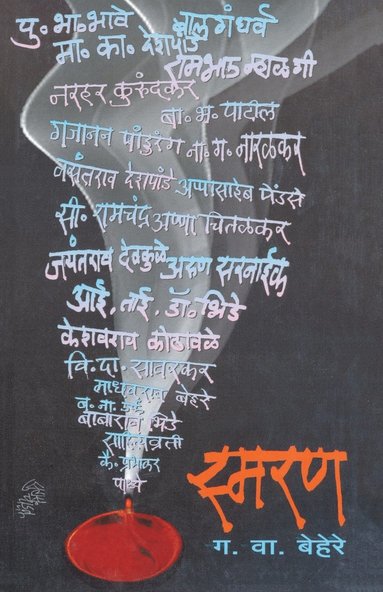 पु. भा. भावे बालगंधर्व
मा. का. देशपांडे
रामभाऊ म्हाळगी
नरहर कुरुंदकर
बा. भ. पाटील
गजानन पांडुरंग ना. ग. नारळकर
वसंतराव देशपांडे अप्पासाहेब पेंडसे
सी. रामचंद्र अण्णा चितळकर
जयंतराव देवकुळे अरुण सरनाईक
आई. ताई. डॉ. भिडे
केशवराव कोठावळे
वि. दा. सावरकर
माधवराव बेहेरे
बाबाराव भिडे
कै. प्रभाकर
पाध्ये
स्मरण
ग. वा. बेहेरे